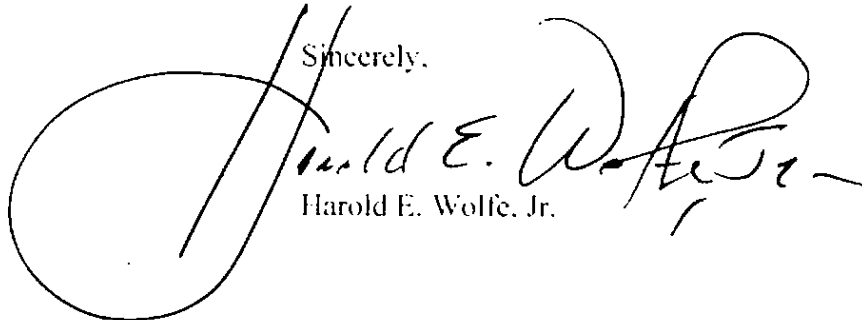 Sincerely,
Harold E. Wolfe, Jr.
Harold E. Wolfe, Jr.